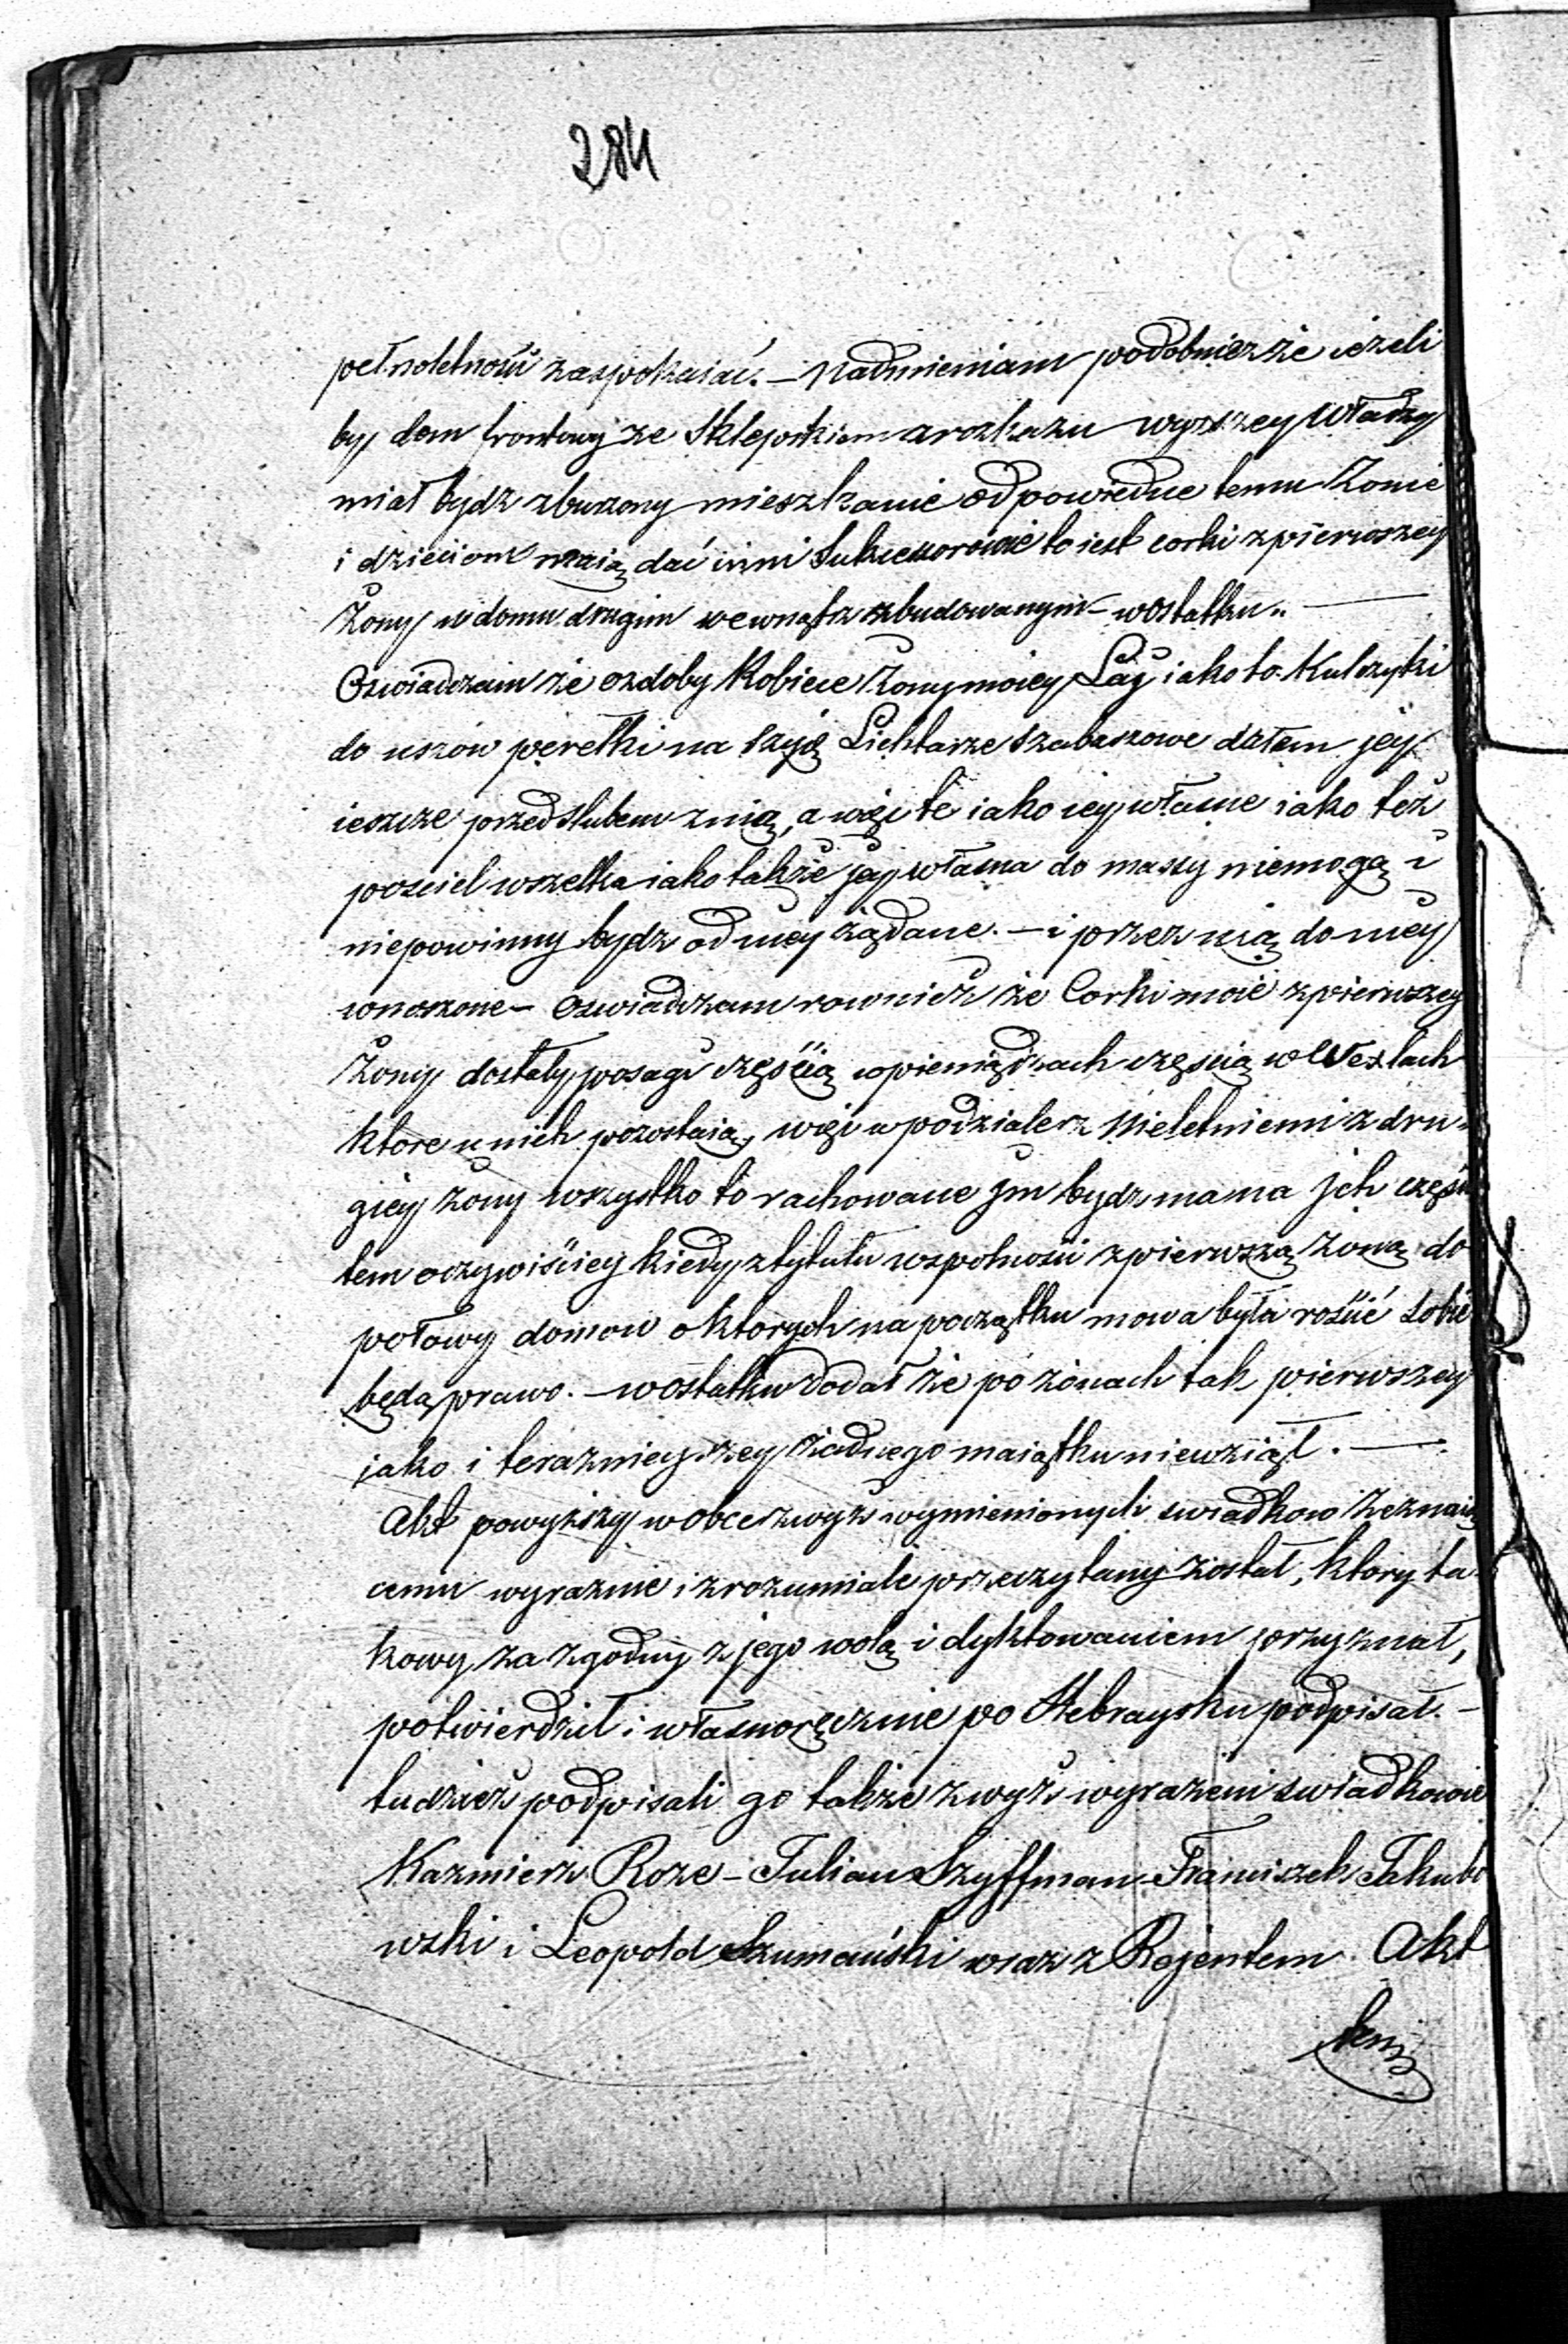 284
pełnoletności zaspokaiać. – Nadmieniam podobnież że ieżeli
by dom frontowy ze Sklepikiem z rozkazu wyższey Władzy
miał bydz zburzony mieszkanie odpowiedne temu Żonie
i dzieciom maią dać inni Sukcessorowie to iest corki z pierwszey
Żony w domu drugim wewnątrz zbudowanym – wostatku..
Oswiadczam że ozdoby Kobiece Żony moiey Łaj iako to. Kulczyki
do uszow perełki na szyję Lichtarze szabaszowe dałem jey
ieszcze przed slubem z nią, a więc te iako iey własne iako też
posciel wszelka iako także jey własna do massy niemogą i
niepowinny bydz od niey żądane. – i przez nią do niey
wnoszone – Oswiadczam rownież że Corki moie z pierwszey
Żony dostały posagi częścią w pieniądzach częscią w Wexlach
ktore u nich pozostaią, więc w podziale z Nieletniemi z dru-
giey żony wszystko to rachowane jm bydz ma na jch częśc
tem oczywiściey kiedy z tytułu wspolności z pierwszą żoną do
połowy domow o ktorych na początku mowa była rościć sobie
będą prawo. – wostatku dodał że po żonach tak pierwszey
jako i terazniejszey żadnego maiątku niewziął. –
Akt powyższy w obec zwyż wymienionych swiadkow zeznaią
cemu wyraznie i zrozumiale przeczytany został, ktory ta-
kowy za zgodny z jego wolą i dyktowaniem przyznał,
potwierdził i własnoręcznie po Hebraysku podpisał. –
tudzież podpisali go także zwyż wyrażeni swiadkowie
Kazmierz Roze – Julian Szyffman – Franciszek Jakubo
wski i Leopold Szumański wraz z Rejentem. Akt
ten